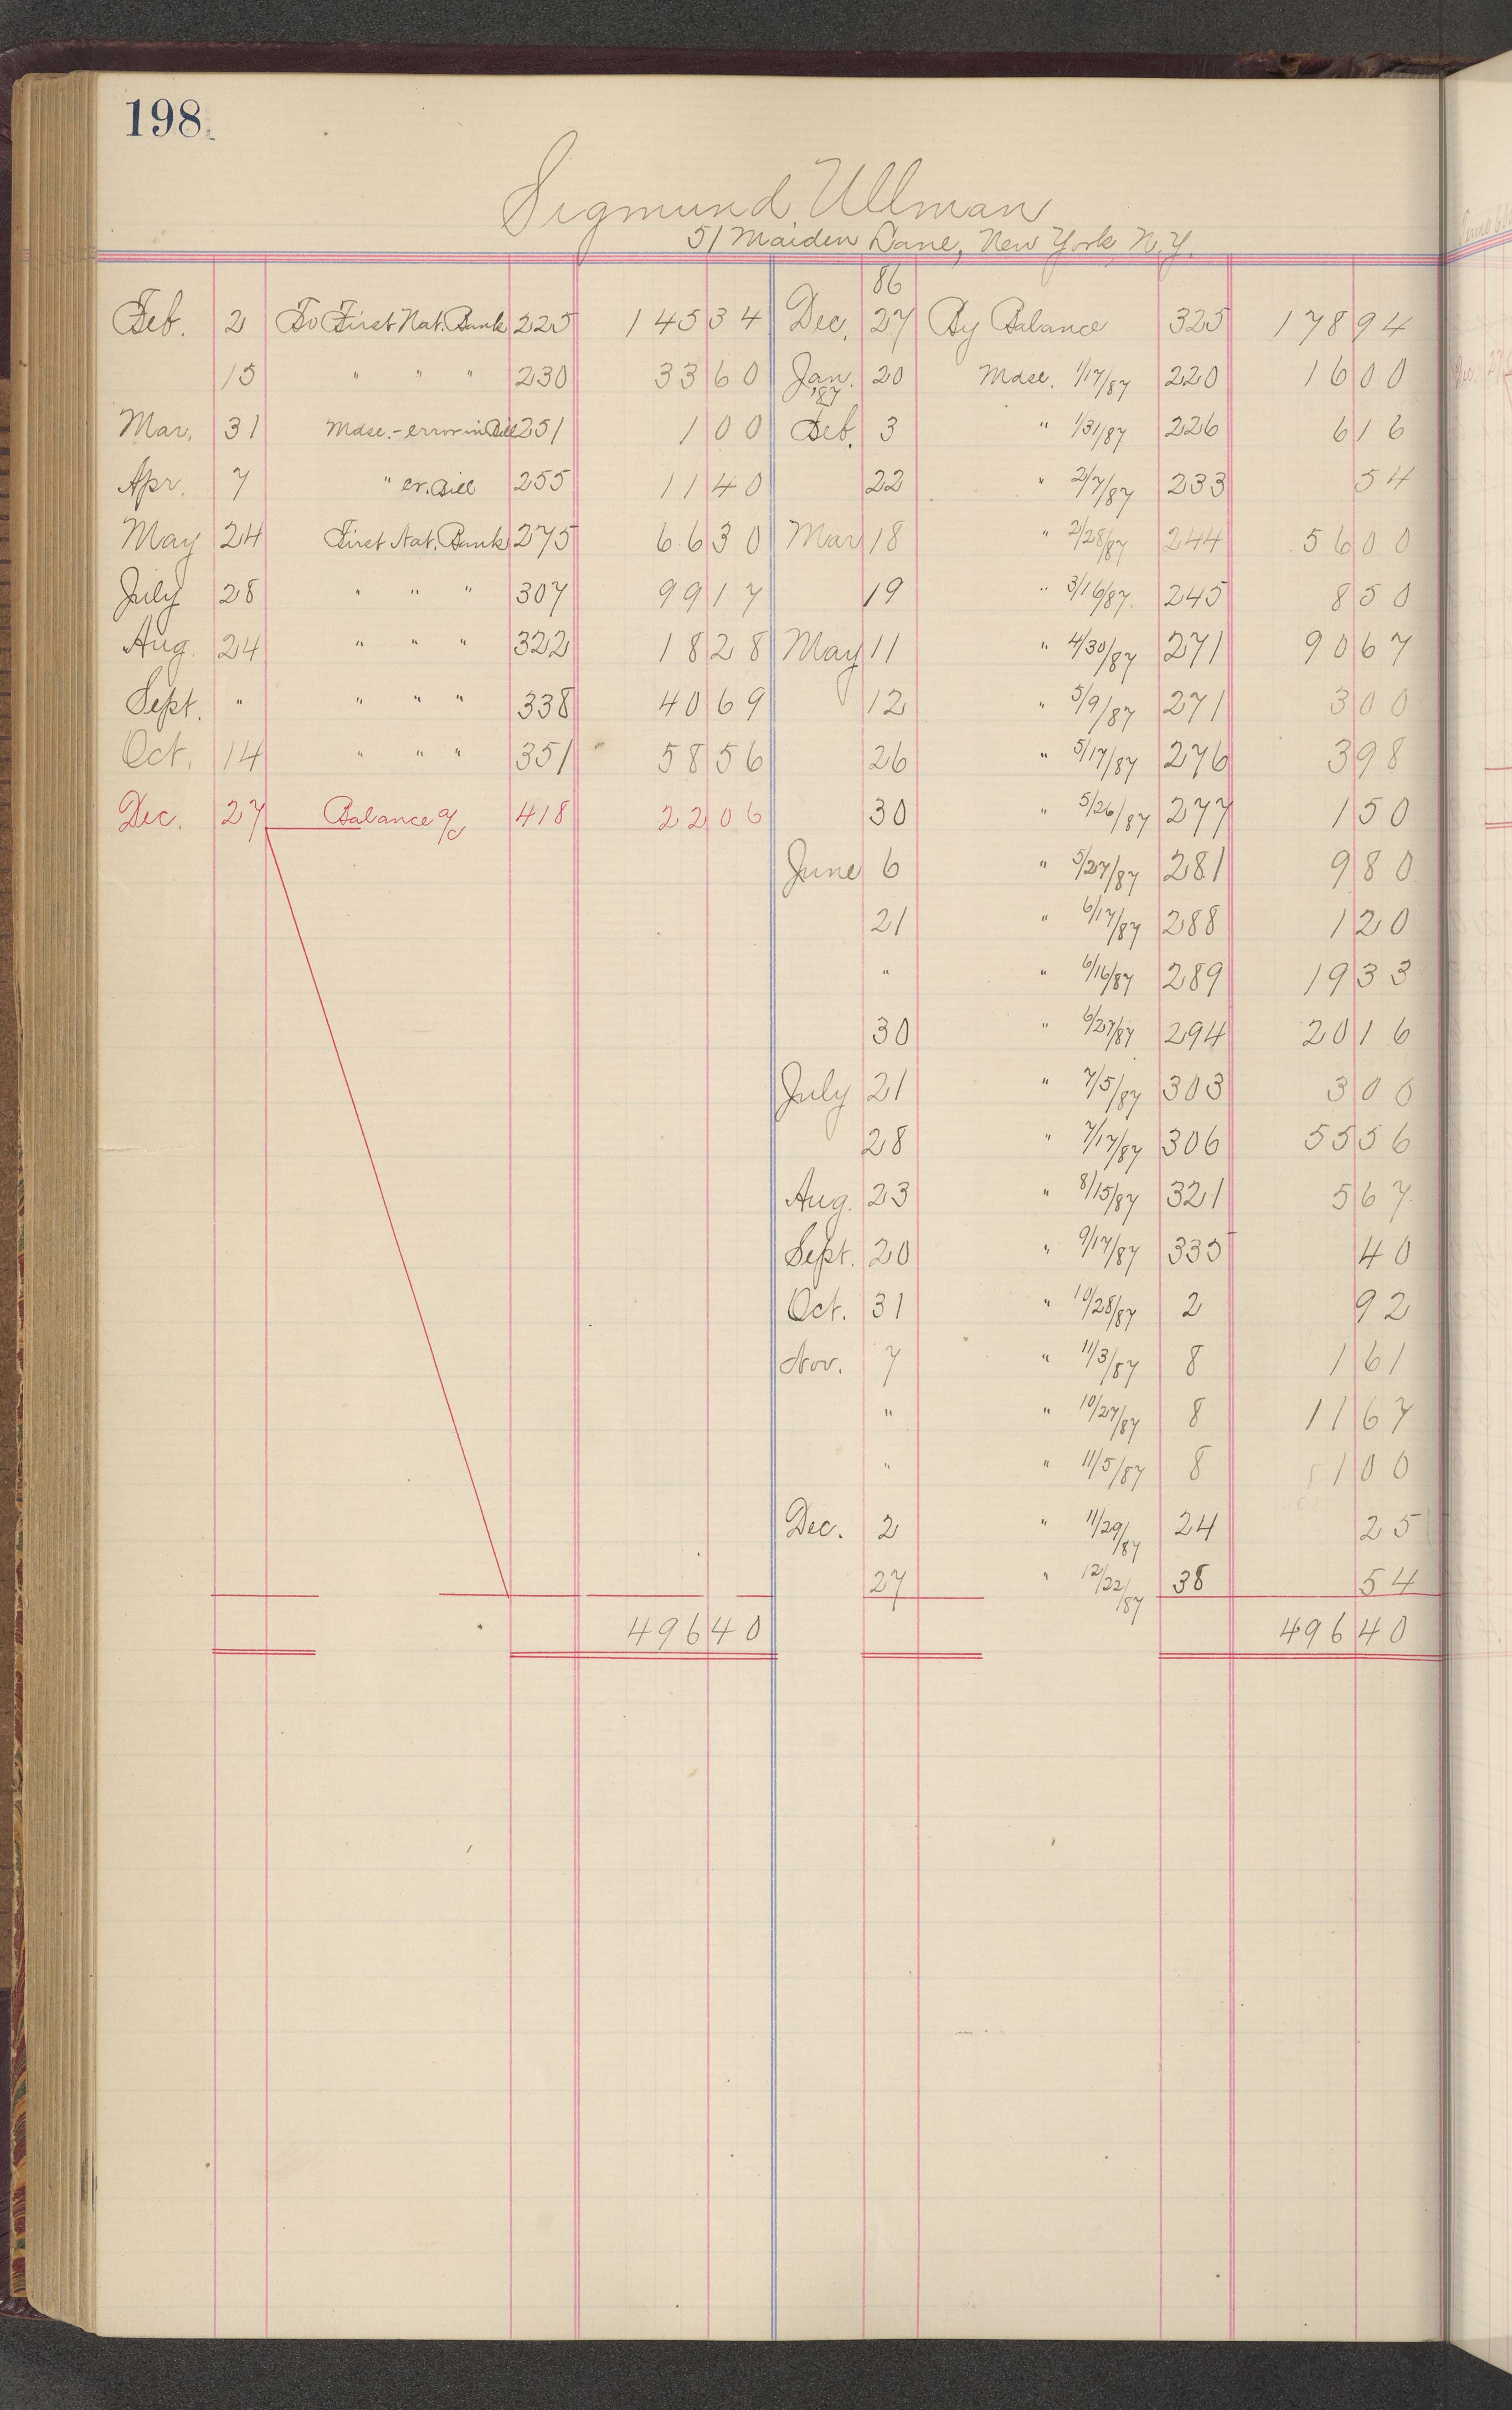 198.
Sigmund Ullman
51 Maiden Lane, New York, N.Y.
86
Feb. 2 To First Nat. Bank 225 145 34 Dec. 27 By Balance 325 178 94
15 " " " 230 33 60 Jan. '87 20 Mdse. 1/17/87 220 16 00
Mar. 31 Mdse. - error in Bill 251 1 00 Feb. 3 " 1/31/87 226 6 16
Apr. 7 " cr. Bill 255 11 40 22 " 2/7/87 233 54
May 24 First Nat. Bank 275 66 30 Mar 18 " 2/28/87 244 56 00
July 28 " " " 307 99 17 19 " 3/16/87. 245 8 50
Aug. 24 " " " 322 18 28 May 11 " 4/30/87 271 90 67
Sept. " " " " 338 40 69 12 " 5/9/87 271 3 00
Oct. 14 " " " 351 58 56 26 " 5/17/87 276 3 98
Dec. 27 Balance a/c 418 22 06 30 " 5/26/87 277 1 50
June 6 " 5/27/87 281 9 80
21 " 6/17/87 288 1 20
" " 6/16/87 289 19 33
30 " 6/27/87 294 20 16
July 21 " 7/5/87 303 3 00
28 " 7/17/87 306 55 56
Aug. 23 " 8/15/87 321 5 67
Sept. 20 " 9/17/87 335 40
Oct. 31 " 10/28/87 2 92
Nov. 7 " 11/3/87 8 1 61
" " 10/27/87 8 11 67
" " 11/5/87 8 1 00
Dec. 2 " 11/29/87 24 25
27 " 12/22/87 38 54
496 40 496 40